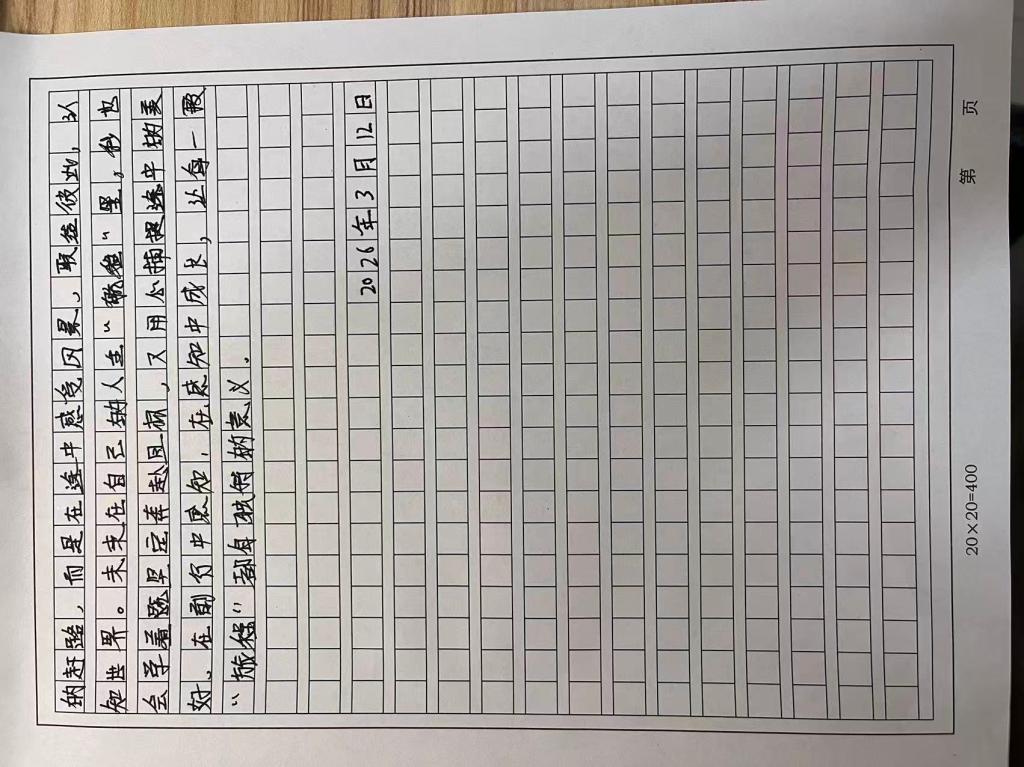 的赶路，而是在途中感受风景、联短彼此，认
知世界。未来在自己的人生“旅程”里。我也
会学着既坚定奔赴目标，又用心捕捉途中的美
好。在前行中感知，在感知中成长，让每一段
“旅程”都有独特的意义。
2026年3月12日
20×20=400
第 页